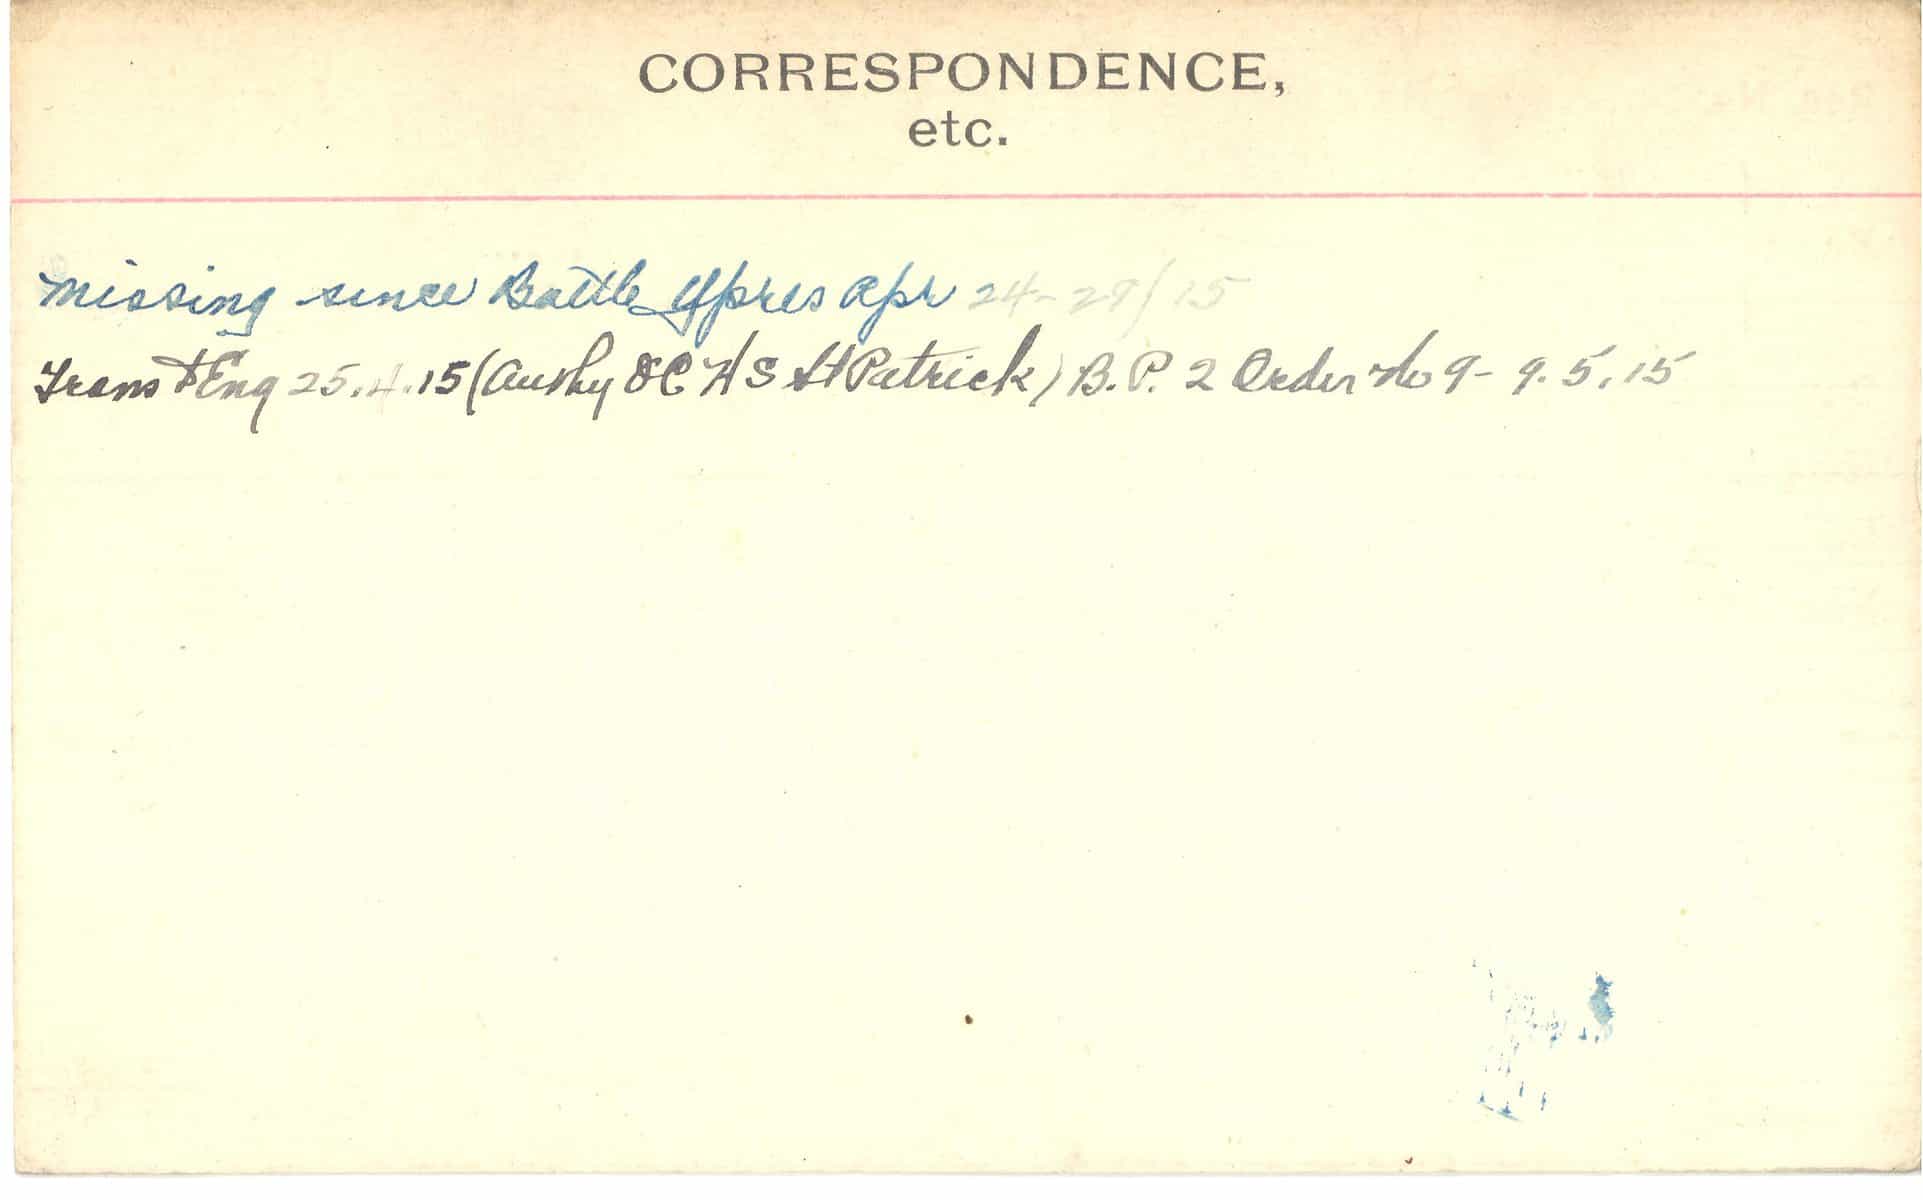 CORRESPONDENCE,
etc.
Missing since Battle Ypres Apr 24-29/15
Trans to Eng 25.4.15 (Authy OC HS St Patrick) B.P. 2 Order No 9- 9.5.15